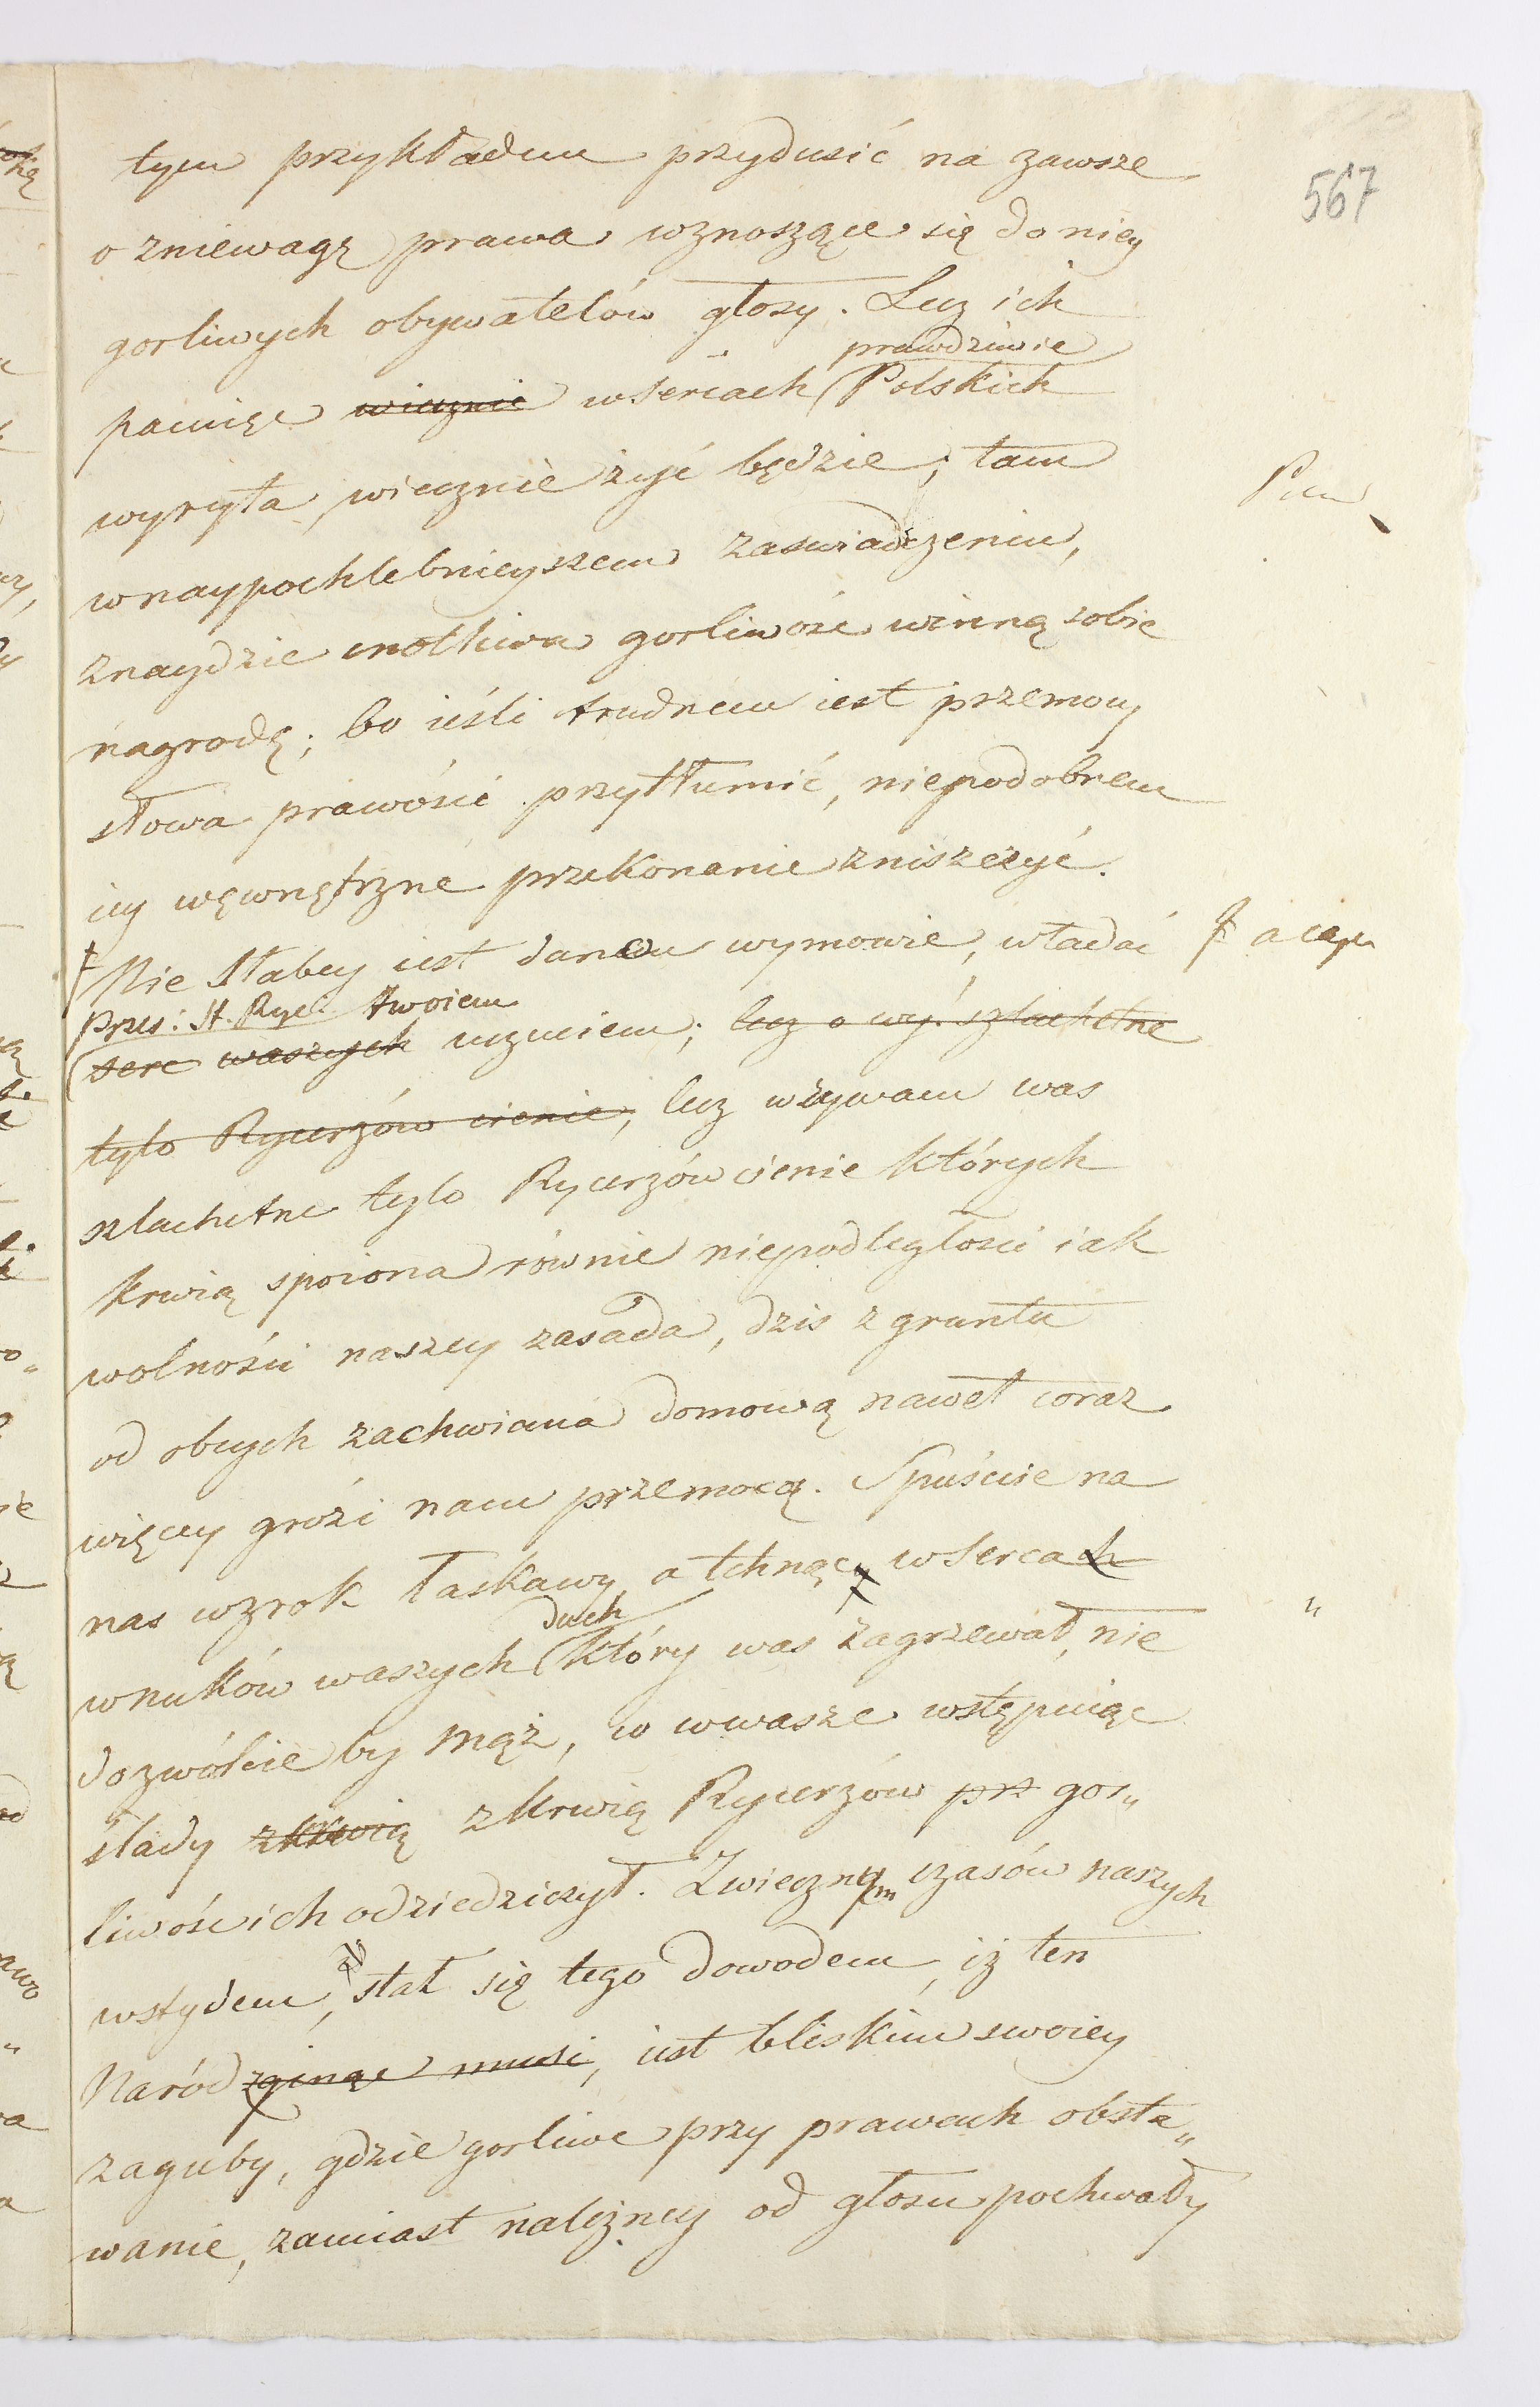 567
tym przykładem przydusić na zawsze
o zniewagę prawa wznoszące się do niey
gorliwych obywatelów głosy. Lecz ich
prawdziwie
pamięć wiecznie w sercach Polskich
wyryta, wiecznie żyć będzie; tam
w naypochlebnieyszem zaswiadczeniu,
znaydzie cnotliwa gorliwość winną sobie
nagrodę; bo ieśli trudnem iest przemocy
słowa prawości przytłumić, niepodobnem
iey wewnętrzne przekonanie zniszczyć.
Nie słabey iest danem wymowie, władać
a cap
Prze: St. Ryc: twoiem
serc waszych uczuciem; lecz o wy! szlachetne
tylo Rycerzów cienie, lecz wzywam was
szlachetne tylo Rycerzów cienie których
krwią spoiona równie niepodległości iak
wolności naszey zasada, dzis z gruntu
od obcych zachwiana domową nawet coraz
więcey grozi nam przemocą. Spuśćcie na
nas wzrok łaskawy, a tchnąc w serca
duch
wnuków waszych który was zagrzewał, nie
dozwólcie by mąż, w wasze wstępuiąc
ślady z krwią z krwią Rycerzów prz gor„
liwość ich odziedziczył. Z wiecznym czasów naszych
wstydem, stał się tego dowodem, iż ten
Naród zginąć musi, iest bliskim swoiey
zaguby, gdzie gorliwe przy prawach obsta„
wanie, zamiast należney od głosu pochwały